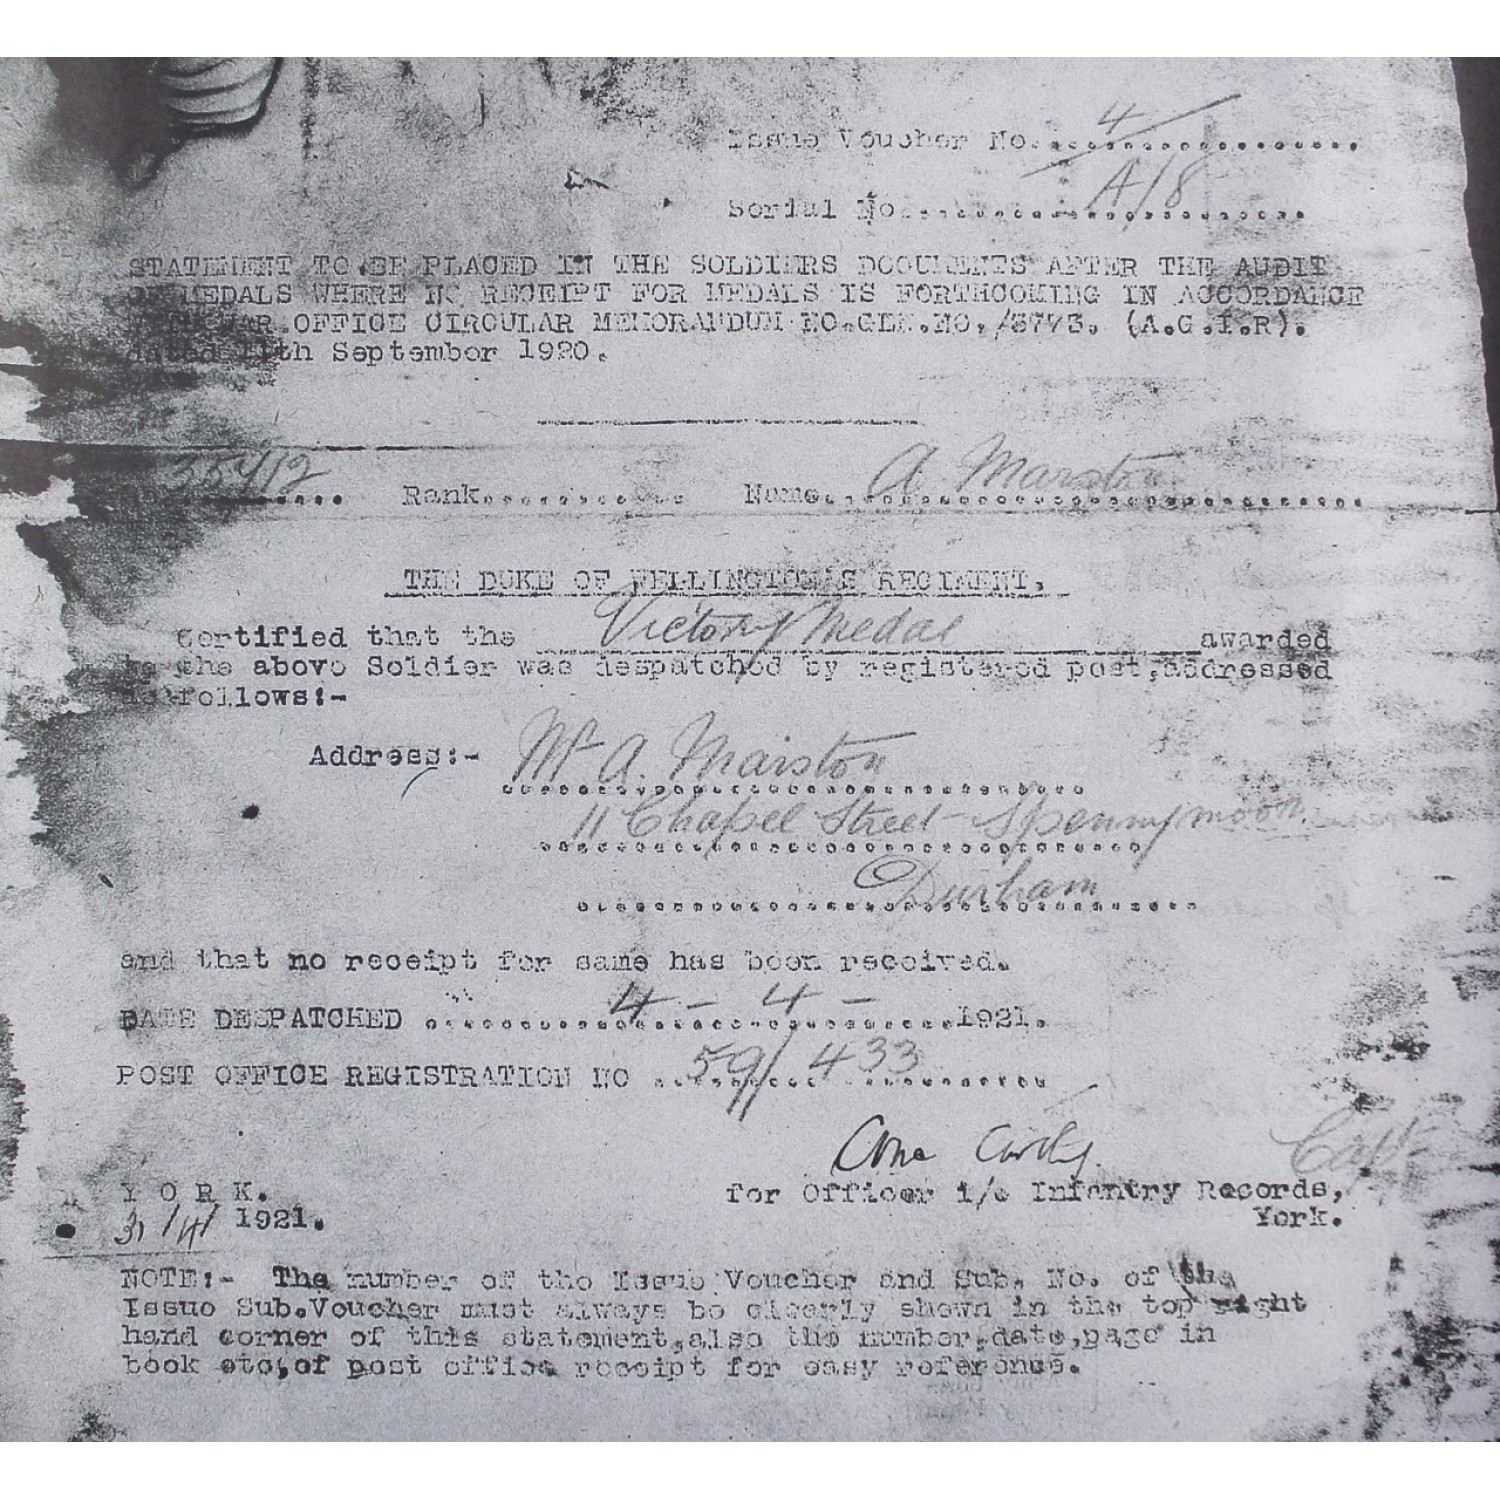 Issue Voucher No. 4
Serial No. A/8
STATEMENT TO BE PLACED IN THE SOLDIERS DOCUMENTS AFTER THE AUDIT
OF MEDALS WHERE NO RECEIPT FOR MEDALS IS FORTHCOMING IN ACCORDANCE
WAR OFFICE CIRCULAR MEMORANDUM NO.GEN.NO./3773. (A.G.I.R).
dated 11th September 1920.
35412 Rank Name A Marston
THE DUKE OF WELLINGTON'S REGIMENT.
Certified that the Victory Medal awarded
to the above Soldier was despatched by registered post, addressed
as follows:-
Address:- Mr A. Marston
11 Chapel Street Spennymoor
Durham
and that no receipt for same has been received.
DATE DESPATCHED 4 - 4 - 1921.
POST OFFICE REGISTRATION NO 59/433
Capt
YORK. for Officer i/c Infantry Records,
1921. York.
NOTE:- The number of the Issue Voucher and Sub. No. of the
Issue Sub.Voucher must always be clearly shown in the top right
hand corner of this statement,also the number,date,page in
book etc,of post office receipt for easy reference.